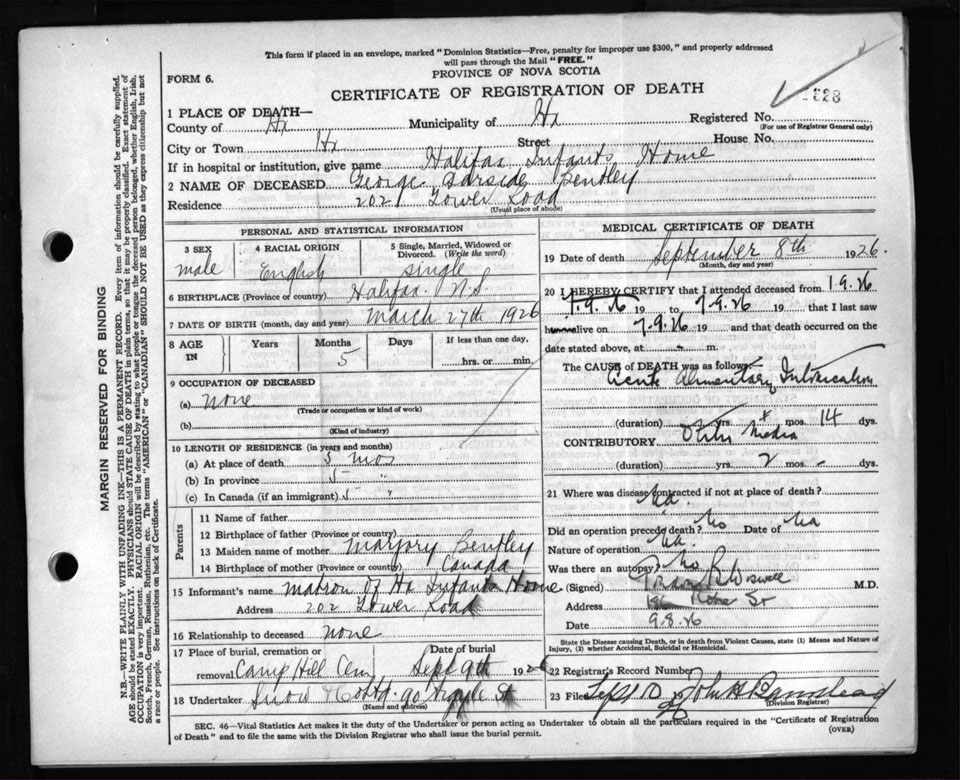 This form if placed in an envelope, marked "Dominion Statistics—Free, penalty for improper use $300," and properly addressed
will pass through the Mail "FREE."
PROVINCE OF NOVA SCOTIA
FORM 6.
CERTIFICATE OF REGISTRATION OF DEATH
1 PLACE OF DEATH—
County of Hx Municipality of Hx Registered No.
(For use of Registrar General only)
City or Town Hx Street House No.
If in hospital or institution, give name Halifax Infants Home
2 NAME OF DECEASED George Garside Bentley
Residence 202 Tower Road
(Usual place of abode)
PERSONAL AND STATISTICAL INFORMATION
3 SEX 4 RACIAL ORIGIN 5 Single, Married, Widowed or
Divorced. (Write the word)
male English single
6 BIRTHPLACE (Province or country) Halifax N.S.
7 DATE OF BIRTH (month, day and year) March 27th 1926
8 AGE IN Years Months Days If less than one day,
5 hrs. or min.
9 OCCUPATION OF DECEASED
(a) none
(Trade or occupation or kind of work)
(b)
(Kind of industry)
10 LENGTH OF RESIDENCE (in years and months)
(a) At place of death 5 mos
(b) In province 5 "
(c) In Canada (if an immigrant) 5 "
Parents
11 Name of father
12 Birthplace of father (Province or country)
13 Maiden name of mother Marjory Bentley
14 Birthplace of mother (Province or country) Canada
15 Informant's name Matron of Hx Infants Home
Address 202 Tower Road
16 Relationship to deceased none
17 Place of burial, cremation or Date of burial
removal Camp Hill Cem Sept 9th 1926
18 Undertaker Snow & Co Ltd. 90 Argyle St
(Name and address)
MEDICAL CERTIFICATE OF DEATH
19 Date of death September 8th 1926.
(Month, day and year)
20 I HEREBY CERTIFY that I attended deceased from 1.9.26
7.9.26 19 to 7.9.26 19 that I last saw
h alive on 7.9.26 19 and that death occurred on the
date stated above, at - m.
The CAUSE of DEATH was as follow:—
Acute Alimentary Intoxication
(duration) yrs. + mos. 14 dys.
CONTRIBUTORY Otitis Media
(duration) yrs. 2 mos. - dys.
21 Where was disease contracted if not at place of death?
Na.
Did an operation precede death? No Date of Na
Nature of operation Na.
Was there an autopsy? No
(Signed) Wiswell M.D.
Address St
Date 9.8.26
State the Disease causing Death, or in death from Violent Causes, state (1) Means and Nature of
Injury, (2) whether Accidental, Suicidal or Homicidal.
22 Registrar's Record Number
23 Filed Sept 10 19 John H Barnstead
(Division Registrar)
SEC. 46—Vital Statistics Act makes it the duty of the Undertaker or person acting as Undertaker to obtain all the particulars required in the "Certificate of Registration
of Death" and to file the same with the Division Registrar who shall issue the burial permit.
(OVER)
MARGIN RESERVED FOR BINDING
N.B.—WRITE PLAINLY WITH UNFADING INK—THIS IS A PERMANENT RECORD. Every item of information should be carefully supplied.
AGE should be stated EXACTLY. PHYSICIANS should STATE CAUSE OF DEATH in plain terms, so that it may be properly classified. Exact statement of
OCCUPATION is very important. RACIAL ORIGIN will be described by stating to what people or tongue the deceased person belonged, whether English, Irish,
Scotch, French, German, Russian, Ruthenian, etc. The terms "AMERICAN" or "CANADIAN" SHOULD NOT BE USED as they express citizenship but not
a race or people. See instructions on back of Certificate.